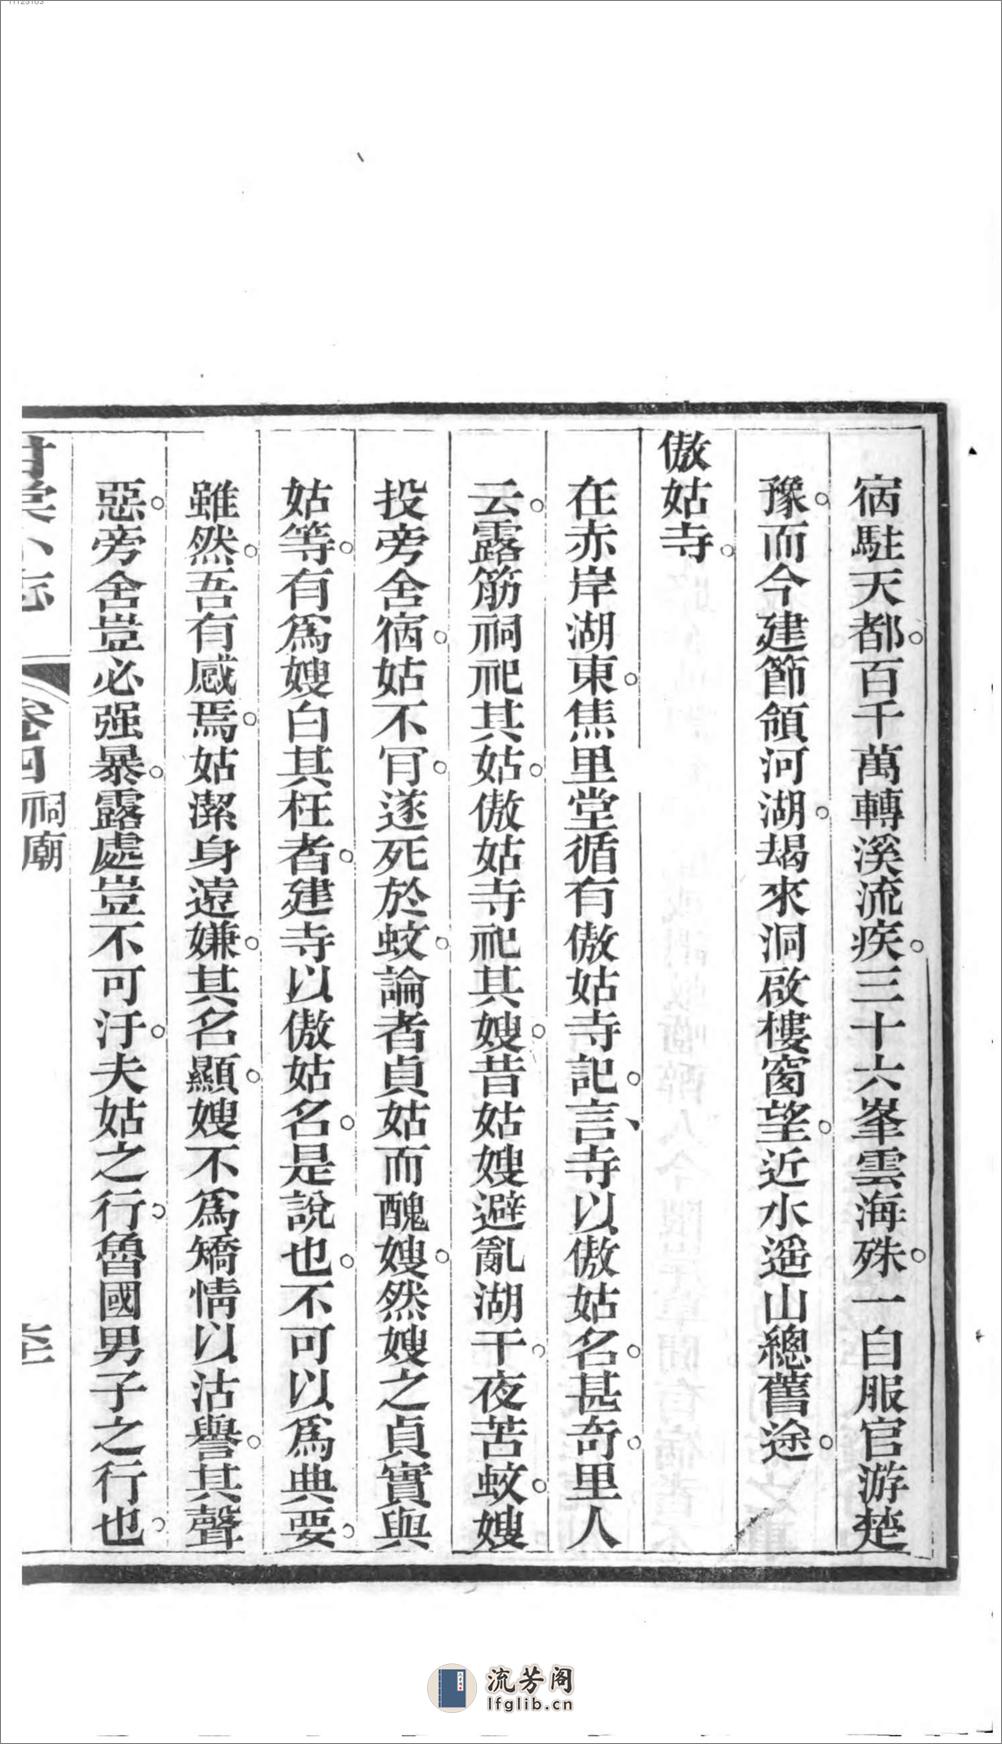 宿駐天都百千萬轉溪流疾三十六峯雲海殊一自服官游楚
豫而今建節領河湖朅來洞啟樓窗望近水遥山總舊途
傲姑寺
在赤岸湖東焦里堂循有傲姑寺記言寺以傲姑名甚奇里人
云露筋祠祀其姑傲姑寺祀其嫂昔姑嫂避亂湖干夜苦蚊嫂
投旁舍宿姑不肎遂死於蚊論者貞姑而醜嫂然嫂之貞實與
姑等有爲嫂白其枉者建寺以傲姑名是說也不可以爲典要
雖然吾有感焉姑潔身遠嫌其名顯嫂不爲矯情以沽譽其聲
惡旁舍豈必强暴露處豈不可汙夫姑之行魯國男子之行也
甘棠小志
卷四
祠廟
流芳阁
lfglib.cn